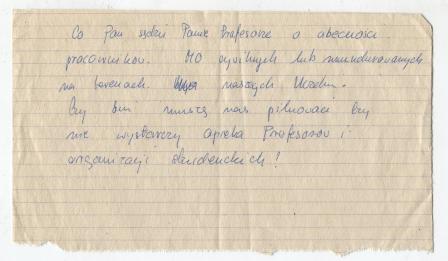 Co Pan sądzi Panie Profesorze o obecności
pracowników. MO cywilnych lub numundurowanych
na terenach. naszych Uczelni.
Czy oni muszą nas pilnować czy
nie wystarczy opieka Profesorów i
organizacji studenckich!